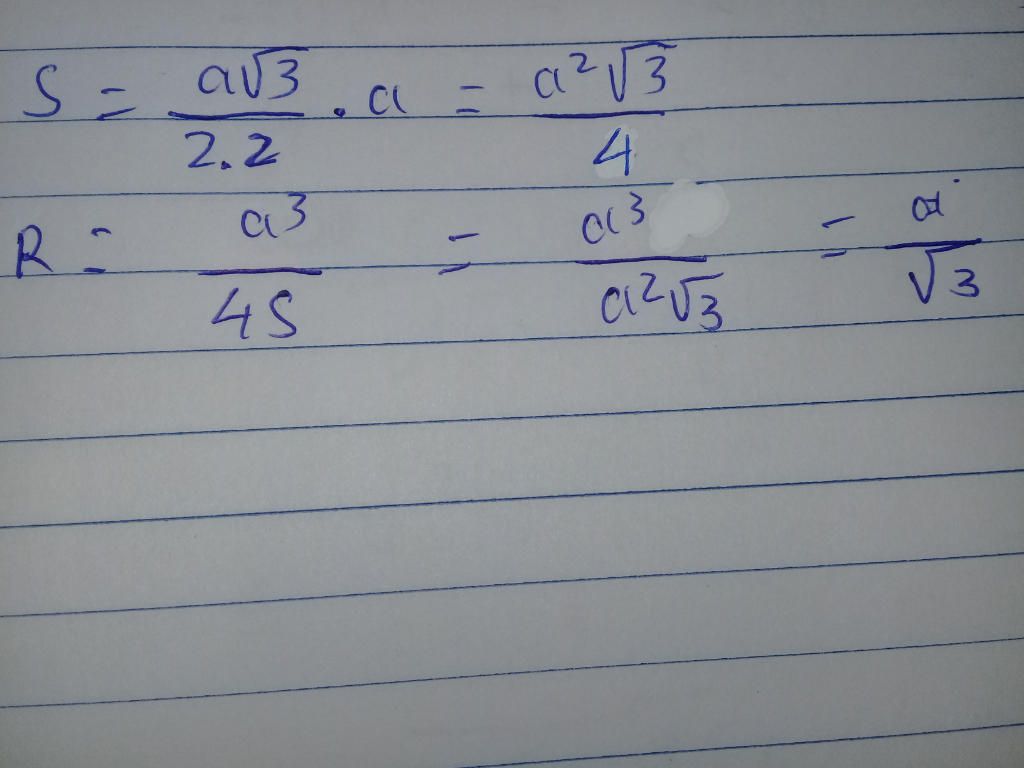 S = a√3/2.2 . a = a²√3/4
R = a³/4S = a³/a²√3 = a/√3